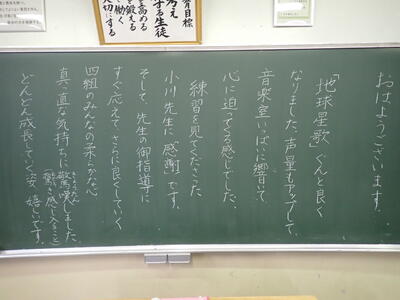 育目標
考え
する生徒
を高める
を鍛える
く働く
大切にする
おはようございます。
「地球星歌」ぐんと良く
なりました、声量もアップして、
音楽室いっぱいに響いて、
心に迫ってくる感じでした。
練習を見てくださった
小川先生に感謝です。
そして、先生の御指導に
すぐ応えて、さらに良くしていく
四組のみんなの柔らかな心
真っ直な気持ちに驚嘆しました。
きょうたん
驚き感じ入ること
どんどん成長していく姿 嬉しいです。